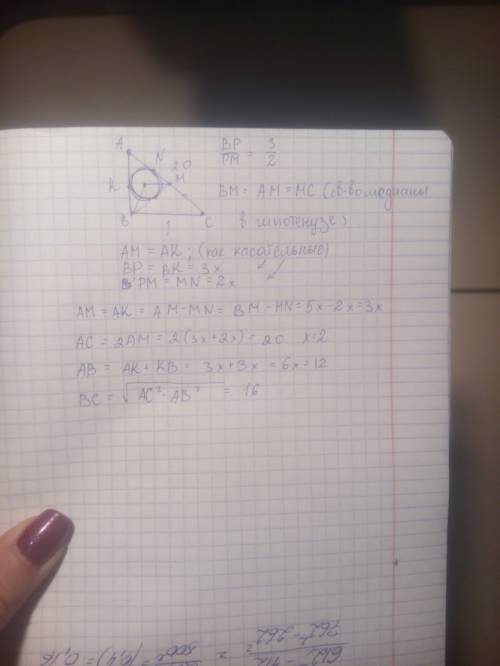 A
N
20
K
M
B
?
C
BP/PM = 3/2
BM = AM = MC (св-во медианы
в гипотенузе)
AM = AK; (как касательные)
BP = BK = 3x
PM = MN = 2x
AM = AK = AM - MN = BM - MN = 5x - 2x = 3x
AC = 2AM = 2(3x+2x) = 20 x=2
AB = AK + KB = 3x + 3x = 6x = 12
BC = √AC² - AB² = 16